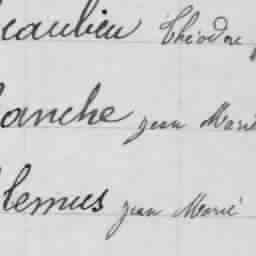 eaulieu Théodore
lanche jean Marie
lemus jean Marie